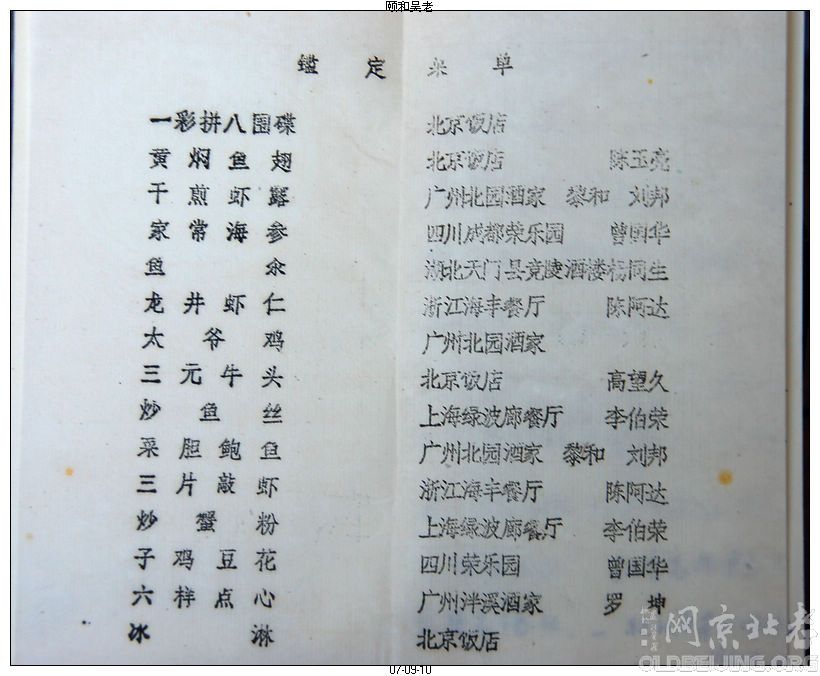 颐和吴老
鉴定菜单
一彩拼八围碟 北京饭店
黄焖鱼翅 北京饭店 陈玉亮
干煎虾碌 广州北园酒家 黎和 刘邦
家常海参 四川成都荣乐园 曾国华
鱼氽 湖北天门县竟陵酒楼 杨同生
龙井虾仁 浙江海丰餐厅 陈阿达
太爷鸡 广州北园酒家
三元牛头 北京饭店 高望久
炒鱼丝 上海绿波廊餐厅 李伯荣
菜胆鲍鱼 广州北园酒家 黎和 刘邦
三片敲虾 浙江海丰餐厅 陈阿达
炒蟹粉 上海绿波廊餐厅 李伯荣
子鸡豆花 四川荣乐园 曾国华
六样点心 广州泮溪酒家 罗坤
冰淋 北京饭店
网京北老
OLDBEIJING.ORG
07-09-10